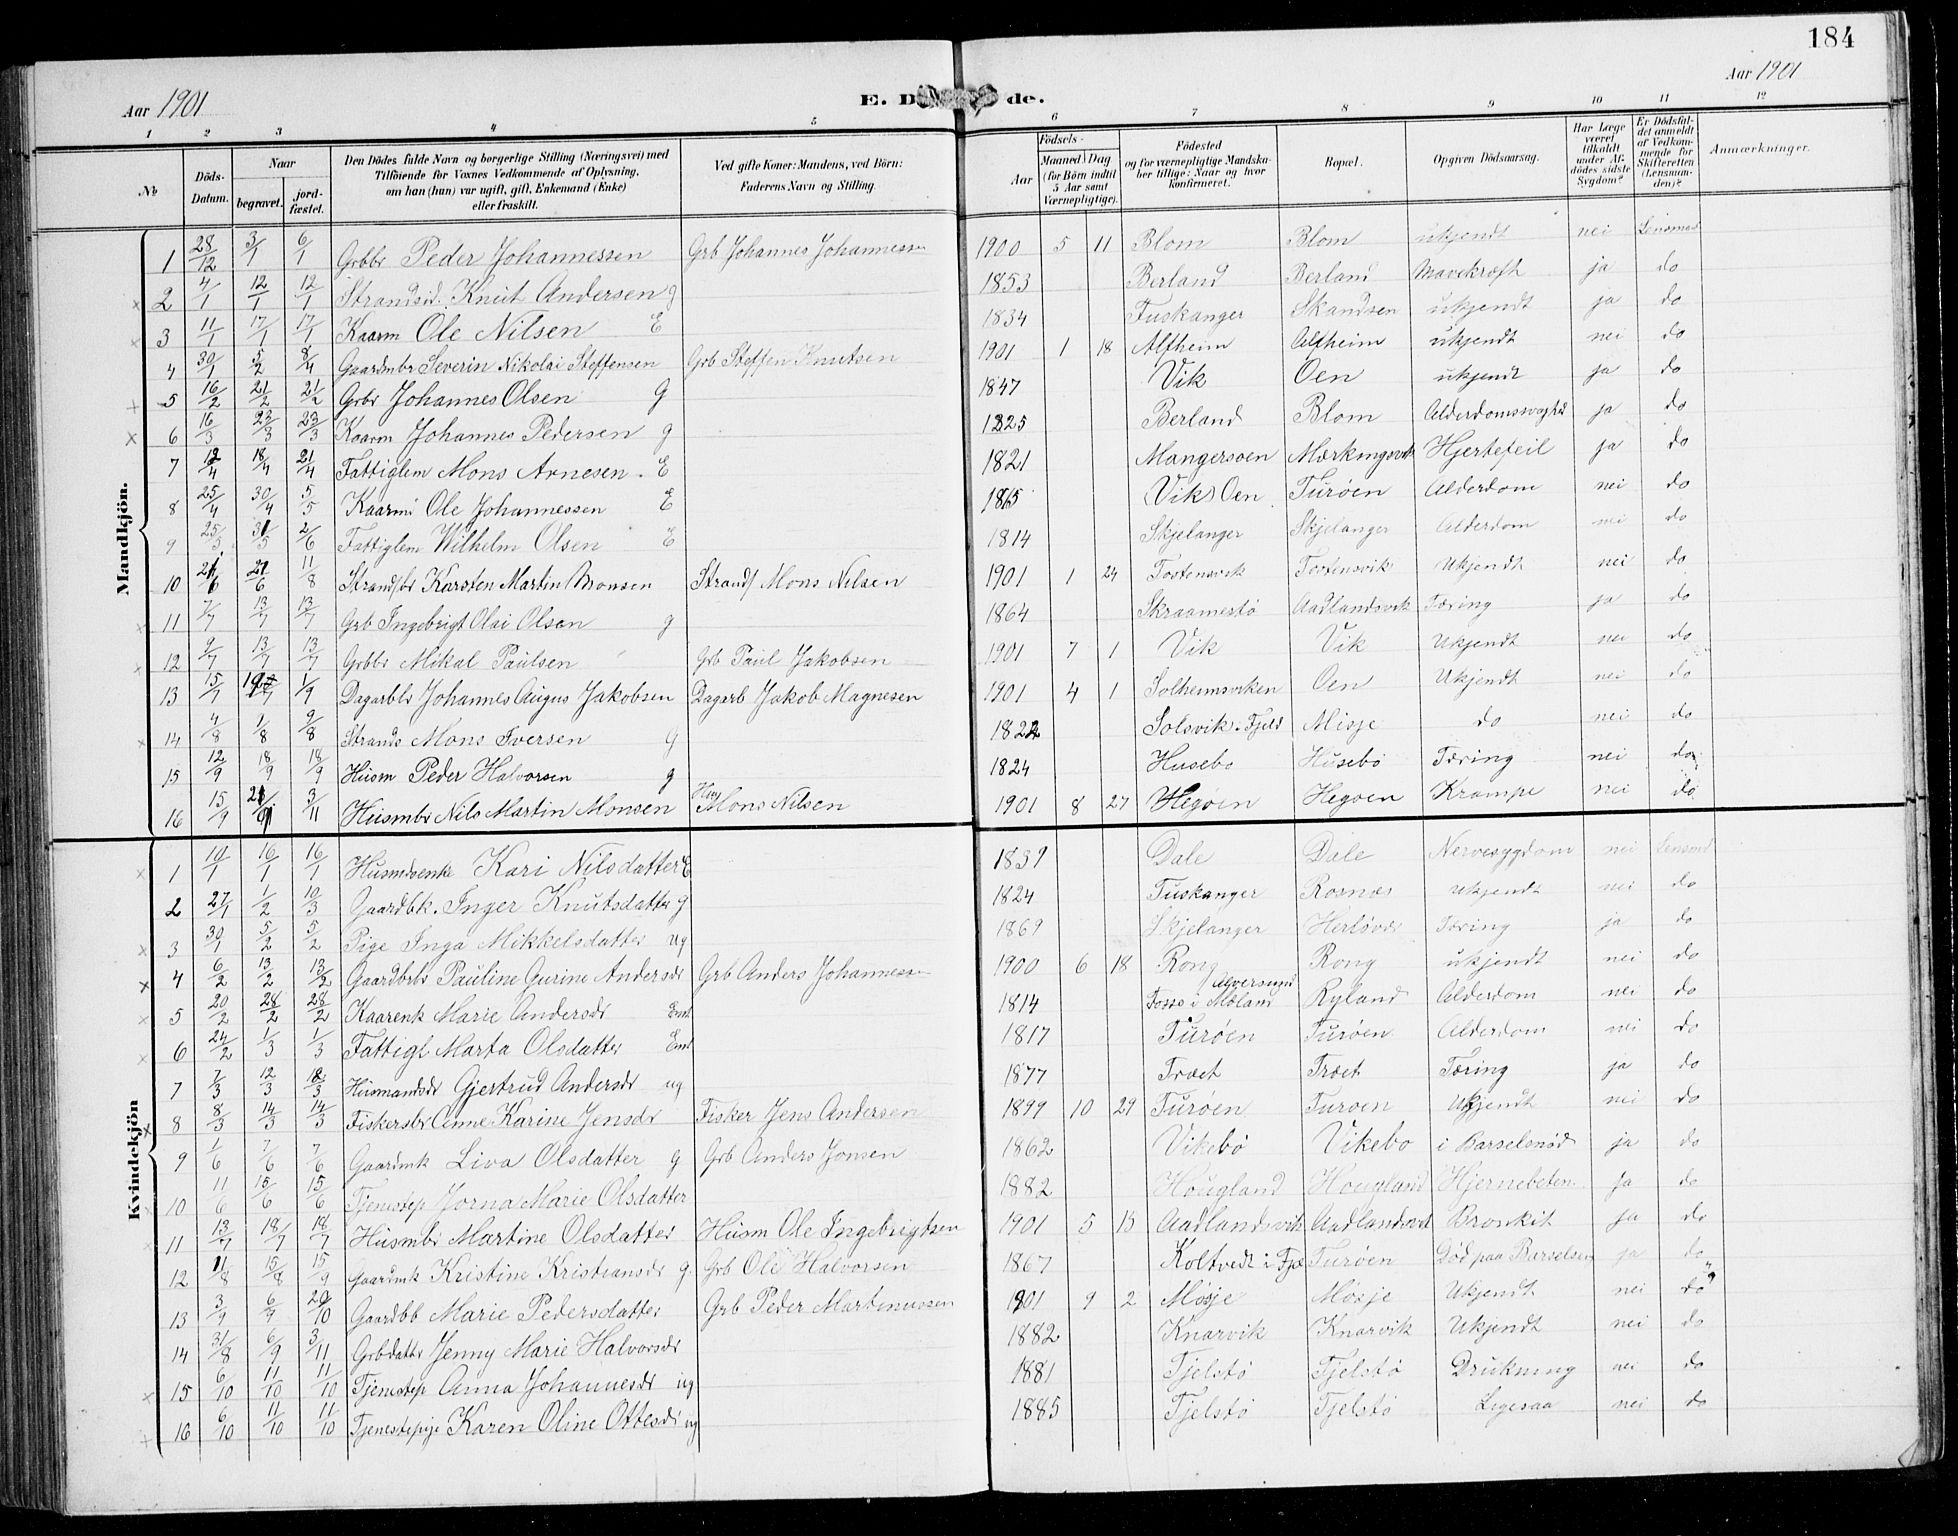 184
Aar 1901 E. D de. Aar 1901
1 2 3 4 5 6 7 8 9 10 11 12
No Döds-Datum. Naar begravet. jord-fæstet. Den Dödes fulde Navn og borgerlige Stilling (Næringsvei) med Tilföiende för Voxnes Vedkommende af Oplysning, om han (hun) var ugift, gift, Enkemand (Enke) eller fraskilt. Ved gifte Koner: Mandens, ved Börn: Faderens Navn og Stilling. Födsels- Aar Maaned Dag (for Börn indtil 5 Aar samt Værnepligtige). Födested og for værnepligtige Mandska-ber tillige: Naar og hvor konfirmeret. Bopæl. Opgiven Dödsaarsag. Har Læge været tilkaldt under Af-dödes sidste Sygdom? Er Dödsfal-det anmeldt af Vedkom-mende for Skifteretten (Lensman-den)? Anmærkninger.
Mandkjön.
1 28/12 3/1 6/1 Grbbr Peder Johannessen Grb Johannes Johannessen 1900 5 11 Blom Blom ukjendt nei Lensmad
2 4/1 12/1 12/1 Strandsid. Knut Andersen g 1853 Berland Berland Mavekræft ja do
3 11/1 17/1 17/1 Kaarm Ole Nilsen E 1834 Tuskanger Skandsen ukjendt ja do
4 30/1 5/2 8/4 Gaardmbr Severin Nikolai Steffensen Grb Steffen Knutsen 1901 1 18 Alfheim Alfheim ukjendt nei do
5 16/2 21/2 21/2 Grbr Johannes Olsen g 1847 Vik Oen ukjendt ja do
6 16/3 23/3 23/3 Kaarm Johannes Pedersen g 1825 Berland Blom Alderdomssvaghd ja do
7 12/4 18/4 21/4 Fattiglem Mons Arnesen. E 1821 Mangersøen Mærkingsvik Hjertefeil ja do
8 25/4 30/4 5/5 Kaarm Ole Johannessen E 1815 (Vik) Oen Turøen Alderdom nei do
9 25/5 31/5 2/6 Fattiglem Wilhelm Olsen E 1814 Skjelanger Skjelanger Alderdom nei do
10 21/6 27/6 11/8 Strandsbr Karsten Martin Monsen Strands Mons Nilsen 1901 1 24 Toftensvik Toftensvik Ukjendt nei do
11 7/7 13/7 13/7 Grb Ingebrigt Olai Olsen g 1864 Skraamestø Aadlandsvik Tæring ja do
12 9/7 13/7 13/7 Grbbr Mikal Paulsen Grb Paul Jakobsen 1901 7 1 Vik Vik Ukjendt nei do
13 15/7 19/7 1/9 Dagarbbr Johannes Augus Jakobsen Dagarb Jakob Magnesen 1901 4 1 Solheimsviken Oen Ukjendt nei do
14 4/8 1/8 9/8 Strands Mons Iversen g 1822 Solsvik i Fjeld Misje do nei do
15 12/9 18/9 18/9 Husm Peder Halvorsen g 1824 Husebø Husebø Tæring nei do
16 15/9 21/9 3/11 Husmbr Nils Martin Monsen Hus Mons Nilsen 1901 8 27 Hegøen Hegøen Krampe nei do
Kvindekjön
1 10/1 16/1 16/1 Husmdsenke Kari Nilsdatter E 1839 Dale Dale Nervesygdom nei Lensmd
2 27/1 1/2 10/3 Gaardbk. Inger Knutsdatter g 1824 Tuskanger Rosnæs Ukjendt nei do
3 30/1 5/2 5/2 Pige Inga Mikkelsdatter ug 1869 Skjelanger Herløvær Tæring ja do
4 6/2 13/2 13/2 Gaardbrbr Pauline Gurine Andersdr Grb Anders Johannessen 1900 6 18 Rong Rong ukjendt nei do
5 20/2 28/2 28/2 Kaarenk Marie Andersdr Enk 1814 Fosse i Mæland Alversund Ryland Alderdom nei do
6 24/2 1/3 1/3 Fattigl Marta Olsdatter Enk 1817 Turøen Turøen Alderdom nei do
7 7/3 12/3 18/3 Husmandsdr Gjertrud Andersdr ug 1877 Træet Træet Tæring ja do
8 8/3 14/3 14/3 Fiskersbr Anne Karine Jensdr Fisker Jens Andersen 1899 10 29 Turøen Turøen Ukjendt nei do
9 1/6 7/6 7/6 Gaardmk Liva Olsdatter g Grb Anders Jonsen 1862 Vikebø Vikebø i Barselsnød ja do
10 11/6 15/6 15/6 Tjenestep Jorna Marie Olsdatter 1882 Hougland Hougland Hjernebeten ja do
11 13/7 18/7 18/7 Husmbr Martine Olsdatter Husm Ole Ingebrigtsen 1901 5 15 Aadlandsvik Aadlandsvik Bronkit ja do
12 11/8 15/8 15/9 Gaardmk Kristine Kristiansdr g. Grb Ole Halvorsen 1867 Koltvedt i Fjæ Turøen Død paa Barselsen ja do
13 3/9 6/9 20/10 Gaardbb Marie Pedersdatter Grb Peder Martinussen 1901 9 2 Møsje Møsje Ukjendt nei do
14 31/8 6/9 3/11 Grbdattr Jenny Marie Halvorsdr 1882 Knarvik Knarvik Ukjendt nei do
15 6/10 11/10 11/10 Tjenestep Anna Johannesdr ug 1881 Tjelstø Tjelstø Drukning nei do
16 6/10 11/10 11/10 Tjenestepige Karen Oline Ottesdr ug 1885 Tjelstø Tjelstø Ligesaa nei do